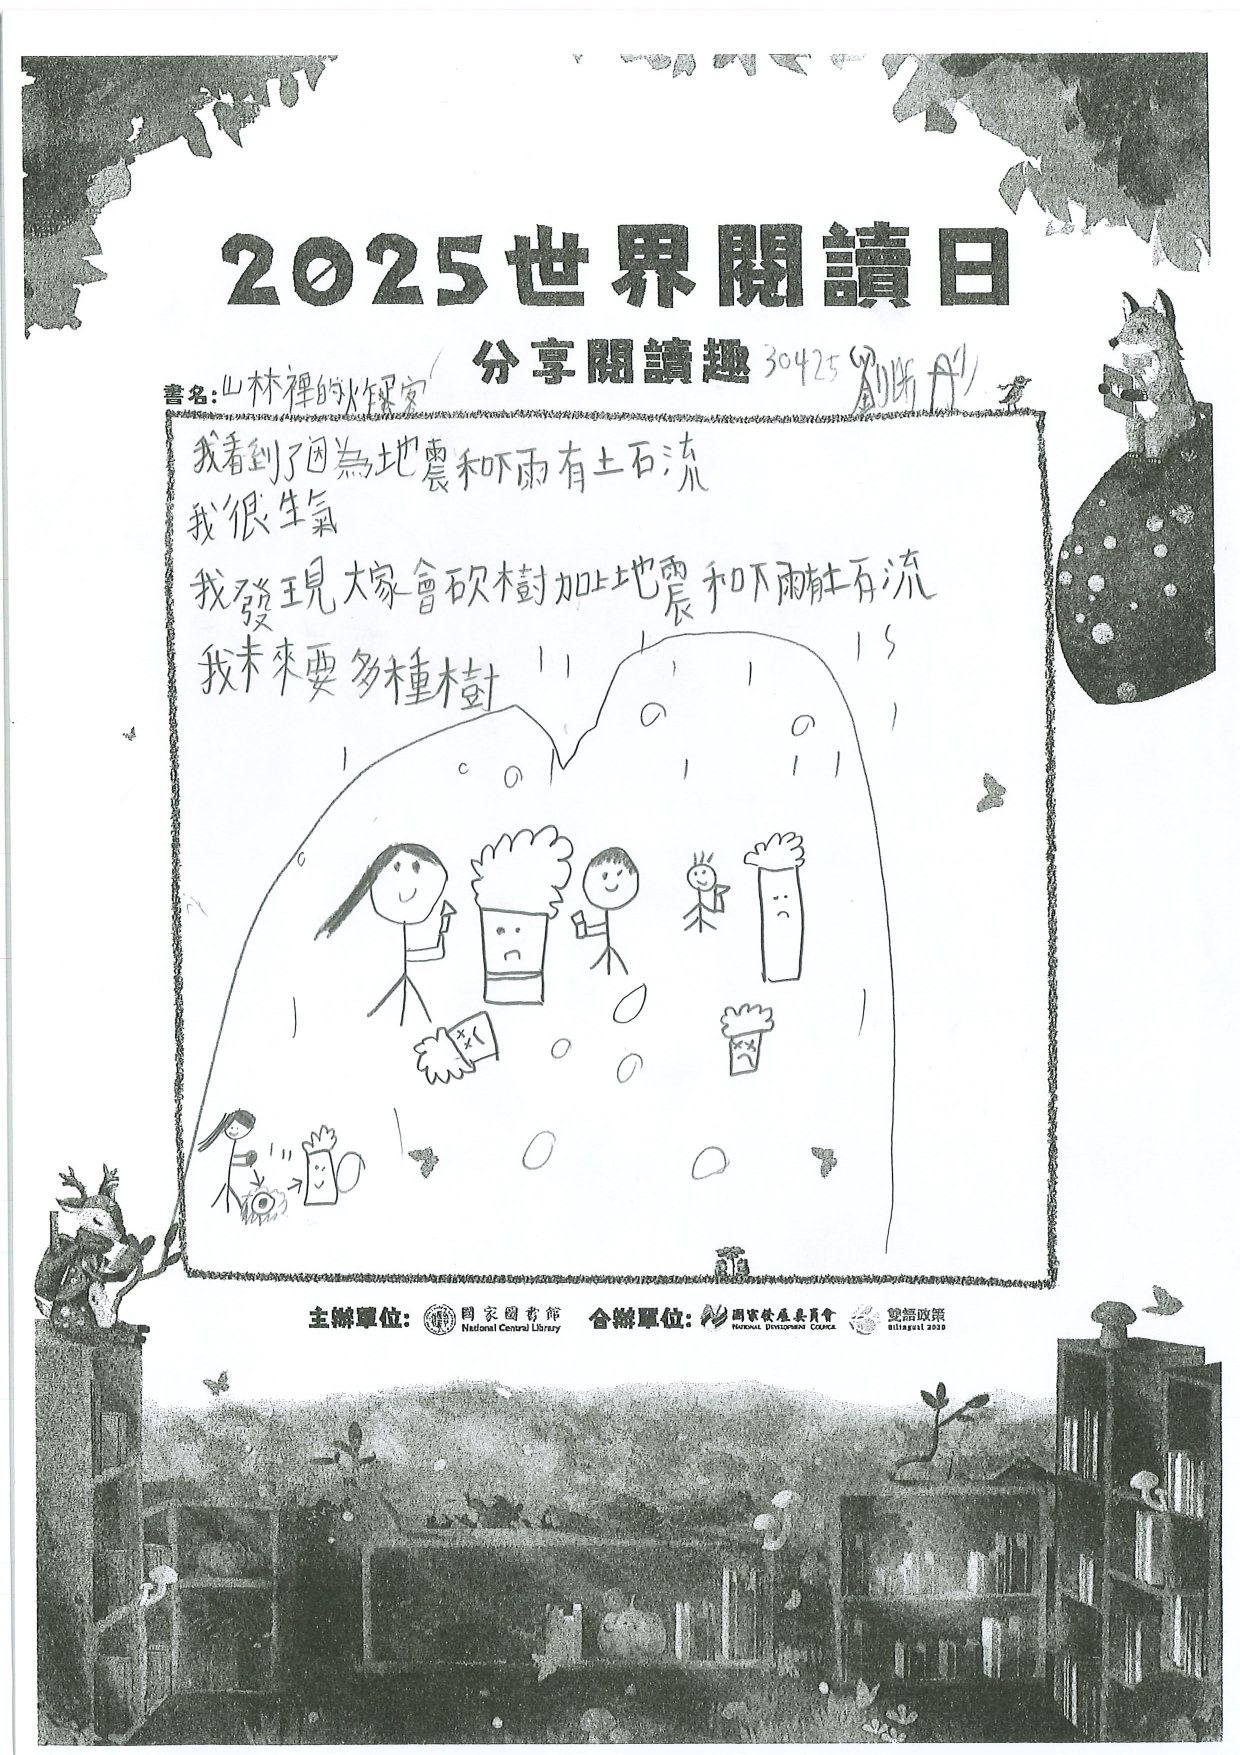 2025世界閱讀日
分享閱讀趣 30425 劉
書名:山林裡的
我看到了因為地震和下雨有土石流
我很生氣
我發現大家會砍樹加上地震和下雨有土石流
我未來要多種樹
主辦單位: 國家圖書館 National Central Library 合辦單位: 國家發展委員會 NATIONAL DEVELOPMENT COUNCIL 雙語政策 Bilingual 2030